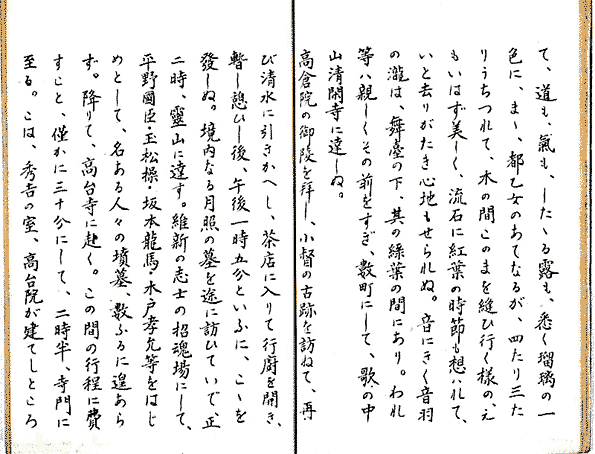 て、道も、氣も、したゝる露も、悉く瑠璃の一
色に、まゝ、都乙女のあてなるが、四たり三た
りうちつれて、木の間このまを縫ひ行く様の、え
もいはず美しく、流石に紅葉の時節も想ハれて、
いと去りがたき心地もせられぬ。音にきく音羽
の瀧は、舞臺の下、其の緑葉の間にあり。われ
等ハ親しくその前をすぎ、數町にして、歌の中
山清閑寺に達しぬ。
高倉院の御陵を拜し、小督の古跡を訪ねて、再
び清水に引きかへし、茶店に入りて行厨を開き、
暫し憩ひし後、午後一時五分といふに、こゝを
發しぬ。境内なる月照の墓を途に訪ひていで、正
二時、靈山に達す。維新の志士の招魂場にして、
平野國臣・玉松操・坂本龍馬・木戸孝允等をはじ
めとして、名ある人々の墳墓、數ふるに遑あら
ず。降りて、高台寺に赴く。この間の行程に費
すこと、僅かに三十分にして、二時半、寺門に
至る。こは、秀吉の室、高台院が建てしところ